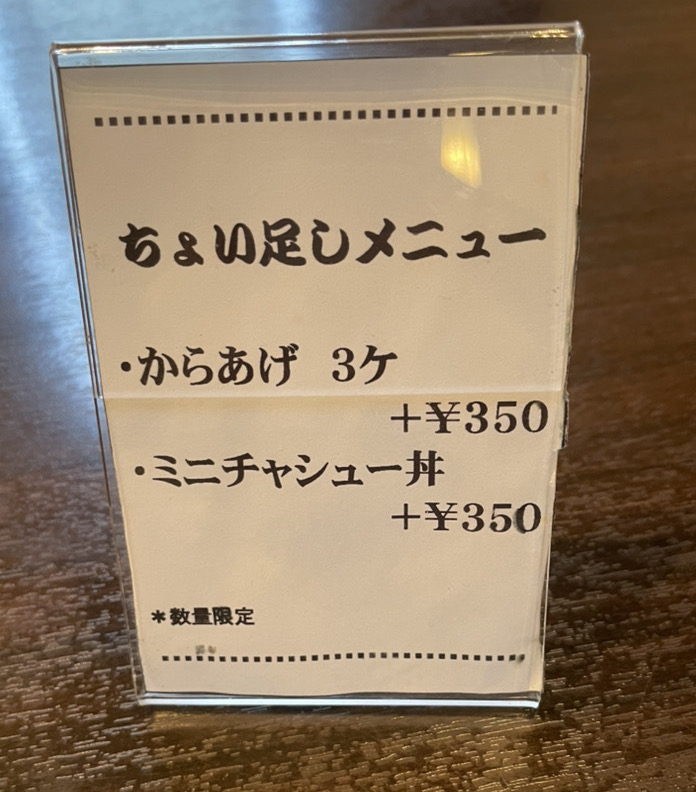 ちょい足しメニュー
・からあげ 3ケ
+¥350
・ミニチャシュー丼
+¥350
*数量限定